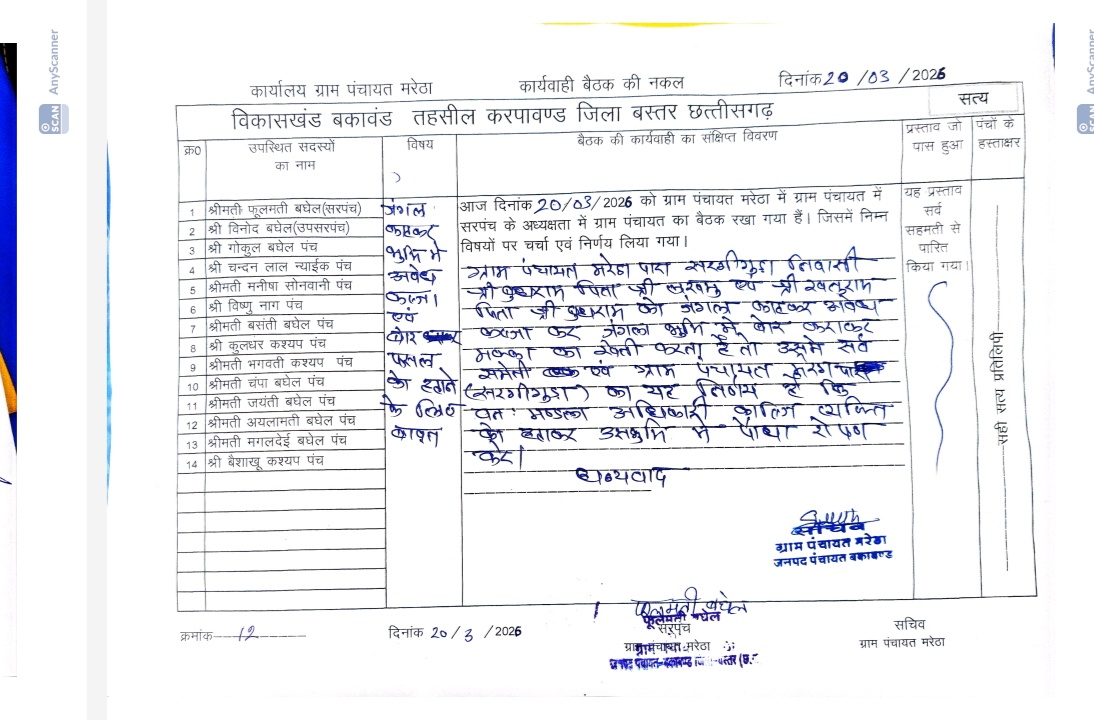 SCAN AnyScanner
AnyScanner
कार्यालय ग्राम पंचायत मरेठा कार्यवाही बैठक की नकल दिनांक 20 /03 / 2026
सत्य
विकासखंड बकावंड तहसील करपावण्ड जिला बस्तर छत्तीसगढ़
क्र0 उपस्थित सदस्यों का नाम विषय बैठक की कार्यवाही का संक्षिप्त विवरण प्रस्ताव जो पास हुआ पंचों के हस्ताक्षर
1 श्रीमती फूलमती बघेल(सरपंच)
2 श्री विनोद बघेल(उपसरपंच)
3 श्री गोकुल बघेल पंच
4 श्री चन्दन लाल न्याईक पंच
5 श्रीमती मनीषा सोनवानी पंच
6 श्री विष्णु नाग पंच
7 श्रीमती बसंती बघेल पंच
8 श्री कुलधर कश्यप पंच
9 श्रीमती भगवती कश्यप पंच
10 श्रीमती चंपा बघेल पंच
11 श्रीमती जयंती बघेल पंच
12 श्रीमती अयलामती बघेल पंच
13 श्रीमती मगलदेई बघेल पंच
14 श्री बैशाखू कश्यप पंच
जंगल
काटकर
भुमि मे
अवैध
कब्जा
एवं
बोर
फसल
को हटाने
के लिए
बाबत
आज दिनांक 20/03/2026 को ग्राम पंचायत मरेठा में ग्राम पंचायत में
सरपंच के अध्यक्षता में ग्राम पंचायत का बैठक रखा गया हैं। जिसमें निम्न
विषयों पर चर्चा एवं निर्णय लिया गया।
ग्राम पंचायत मरेठा पारा सरगीगुड़ा निवासी
श्री बुधराम पिता श्री एवं श्री रवलुराम
पिता श्री बुधराम को जंगल काटकर अवैध
कब्जा कर जंगल भुमि में बोर कराकर
मक्का का खेती करता है तो उसमे सर्व
समिती एवं ग्राम पंचायत
(सरगीगुड़ा) का यह निर्णय है कि
वन मण्डल अधिकारी काबिज व्यक्ति
को हटाकर उस भुमि मे पौधा रोपण
करे।
धन्यवाद
यह प्रस्ताव
सर्व
सहमती से
पारित
किया गया।
सही सत्य प्रतिलिपी
सचिव
ग्राम पंचायत मरेठा
जनपद पंचायत बकावण्ड
क्रमांक 12 दिनांक 20 / 3 / 2026
फूलमती बघेल
फूलमती बघेल
सरपंच
ग्राम पंचायत मरेठा
सचिव
ग्राम पंचायत मरेठा